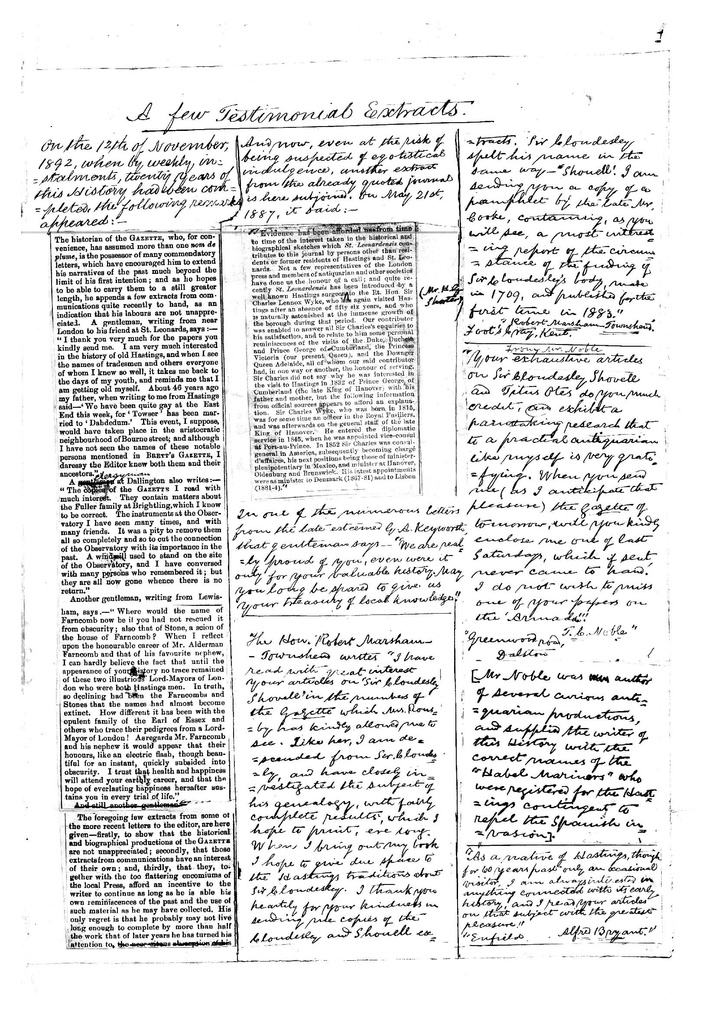 1
A few Testimonial Extracts.
On the 12th of November,
1892, when by weekly, in-
=stalments, twenty years of
this History had been com-
=pleted, the following remarks
appeared:-
The historian of the GAZETTE, who, for con-
venience, has assumed more than one nom de
plume, is the possessor of many commendatory
letters, which have encouraged him to extend
his narratives of the past much beyond the
limit of his first intention; and as he hopes
to be able to carry them to a still greater
length, he appends a few extracts from com-
munications quite recently to hand, as an
indication that his labours are not unappre-
ciated. A gentleman, writing from near
London to his friend at St. Leonards, says:—
"I thank you very much for the papers you
kindly send me. I am very much interested
in the history of old Hastings, and when I see
the names of tradesmen and others everyone
of whom I knew so well, it takes me back to
the days of my youth, and reminds me that I
am getting old myself. About 46 years ago
my father, when writing to me from Hastings
said—'We have been quite gay at the East
End this week, for 'Towser' has been mar-
ried to 'Dabdedum.' This event, I suppose,
would have taken place in the aristocratic
neighbourhood of Bourne street; and although
I have not seen the names of these notable
persons mentioned in BRETT'S GAZETTE, I
daresay the Editor knew both them and their
ancestors."
A clergyman at Dallington also writes:—
"The copies of the GAZETTE I read with
much interest. They contain matters about
the Fuller family at Brightling, which I know
to be correct. The instruments at the Obser-
vatory I have seen many times, and with
many friends. It was a pity to remove them
all so completely and so to cut the connection
of the Observatory with its importance in the
past. A windmill used to stand on the site
of the Observatory, and I have conversed
with many persons who remembered it; but
they are all now gone whence there is no
return."
Another gentleman, writing from Lewis-
ham, says,—"Where would the name of
Farncomb now be if you had not rescued it
from obscurity; also that of Stone, a scion of
the house of Farncomb? When I reflect
upon the honourable career of Mr. Alderman
Farncomb and that of his favourite nephew,
I can hardly believe the fact that until the
appearance of your history no trace remained
of these two illustrious Lord-Mayors of Lon-
don who were both Hastings men. In truth,
so declining had been the Farncombs and
Stones that the names had almost become
extinct. How different it has been with the
opulent family of the Earl of Essex and
others who trace their pedigrees from a Lord-
Mayor of London! As regards Mr. Farncomb
and his nephew it would appear that their
honours, like an electric flash, though beau-
tiful for an instant, quickly subsided into
obscurity. I trust that health and happiness
will attend your earthly career, and that the
hope of everlasting happiness hereafter sus-
tains you in every trial of life."
And still another gentleman
The foregoing few extracts from some of
the more recent letters to the editor, are here
given—firstly, to show that the historical
and biographical productions of the GAZETTE
are not unappreciated; secondly, that those
extracts from communications have an interest
of their own; and, thirdly, that they, to-
gether with the too flattering encomiums of
the local Press, afford an incentive to the
writer to continue as long as he is able his
own reminiscences of the past and the use of
such material as he may have collected. His
only regret is that he probably may not live
long enough to complete by more than half
the work that of later years he has turned his
attention to,
And now, even at the risk of
being suspected of egotistical
indulgence, another extract
from the already quoted journal
is here subjoined. On May 21st,
1887, it said:-
"Evidence has been afforded us from time
to time of the interest taken in the historical and
biographical sketches which St. Leonardensis con-
tributes to this journal by persons other than resi-
dents or former residents of Hastings and St. Leo-
nards. Not a few representatives of the London
press and members of antiquarian and other societies
have done us the honour of a call; and quite re-
cently St. Leonardensis has been introduced by a
well known Hastings surgeon to the Rt. Hon. Sir
Charles Lennox Wyke, who has again visited Has-
tings after an absence of fifty six years, and who
is naturally astonished at the immense growth of
the borough during that period. Our contributor
was enabled to answer all Sir Charles's enquiries to
his satisfaction, and to relate to him some personal
reminiscences of the visits of the Duke, Duchess
and Prince George of Cumberland, the Princess
Victoria (our present Queen), and the Dowager
Queen Adelaide, all of whom our said contributor
had, in one way or another, the honour of serving.
Sir Charles did not say why he was interested in
the visit to Hastings in 1832 of Prince George of
Cumberland (the late King of Hanover) with his
father and mother, but the following information
from official sources appears to afford an explana-
tion. Sir Charles Wyke, who was born in 1815,
was for some time an officer in the Royal Fusiliers,
and was afterwards on the general staff of the late
King of Hanover. He entered the diplomatic
service in 1845, when he was appointed vice-consul
at Port-au-Prince. In 1852 Sir Charles was consul-
general in America, subsequently becoming chargé
d'affaires, his next positions being those of minister-
plenipotentiary in Mexico, and minister at Hanover,
Oldenburg and Brunswick. His latest appointments
were as minister to Denmark (1867-81) and to Lisbon
(1881-4)."
In one of the numerous letters
from the late esteemed G. A. Keyworth,
that gentleman says—"We are real
=ly proud of you, even were it
only for your valuable history. May
you long be spared to give us
your treasury of local knowledge."
The Hon. Robert Marsham—
Townshend writes "I have
read with great interest
your articles on 'Sir Cloudesly
Shovell' in the numbers of
the Gazette which Mrs. Rons-
by has kindly allowed me to
see. Like her, I am de=
scended from Sir Clouds=
ly, and have closely in=
vestigated the subject of
his genealogy, with fairly
complete results, which I
hope to print, ere long.
When I bring out my book
I hope to give due space to
the Hastings traditions about
Sir Cloudesly. I thank you
heartily for your kindness in
sending me copies of the
Cloudesly and Shovell ex=
=tracts. Sir Cloudesley
spelt his name in the
same way—'Shovell'. I am
sending you a copy of a
pamphlet by the late Mr.
Cooke, containing, as you
will see, a most interest
=ing report of the circum
=stance of the finding of
Sir Cloudesley's body, made
in 1709, and published for the
first time in 1883."
"Robert Marsham-Townshend.
Foot's Cray, Kent.
From Mr. Noble
"Your exhaustive articles
on Sir Cloudesley Shovele
and Titus Oates do you much
credit, and exhibit a
painstaking research that
to a practical antiquarian
like myself is very grati
=fying. When you send
me (as I anticipate that
pleasure) the Gazette of
tomorrow, will you kindly
enclose me one of last
Saturdays, which if sent
never came to hand.
I do not wish to miss
one of your papers on
the Armada."
T. C. Noble"
"Greenwood road,
Dalston
[Mr Noble was an author
of several curious anti=
=quarian productions,
and supplied the writer of
this History with the
correct names of the
"Habel Mariners" who
were registered for the Hast=
=ings contingent to
repel the Spanish in
=vasion].
"As a native of Hastings, though
for 60 years past only an occasional
visitor, I am always interested in
anything connected with its early
history, and I read your articles
on that subject with the greatest
pleasure."
"Enfield Alfred Bryant."